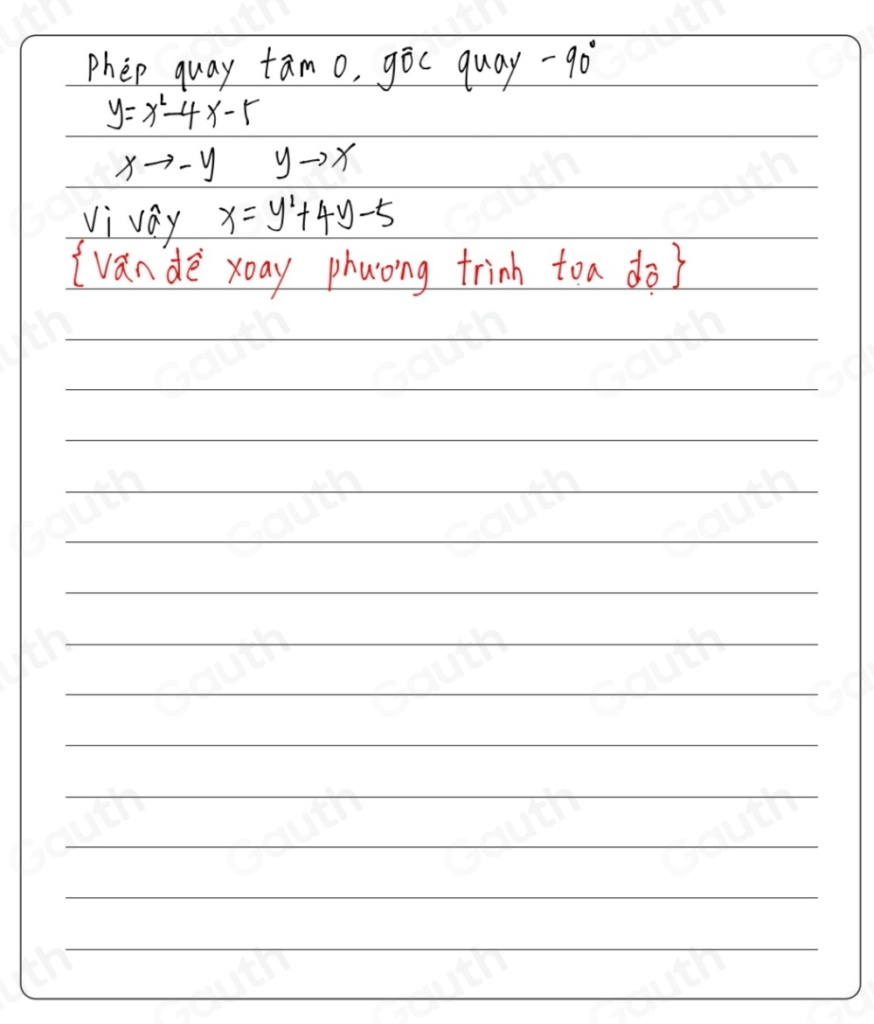 Phép quay tâm O, góc quay -90°
y=x²-4x-5
x→-y y→x
Vì vậy x=y²+4y-5
{Vấn đề xoay phương trình tọa độ}
Gauth